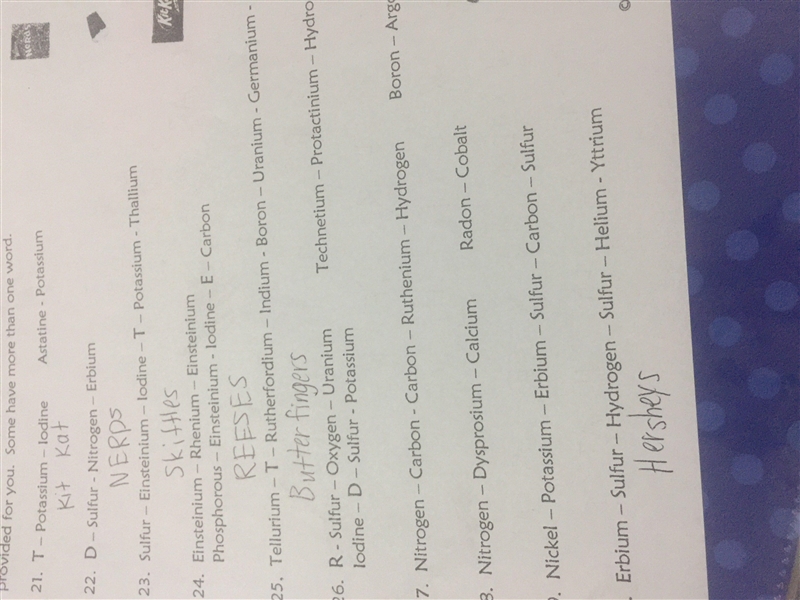 provided for you. Some have more than one word.
21. T – Potassium – Iodine Astatine - Potassium
Kit Kat
22. D – Sulfur - Nitrogen – Erbium
NERDS
23. Sulfur – Einsteinium – Iodine – T – Potassium - Thallium
Skittles
24. Einsteinium – Rhenium – Einsteinium
Phosphorous – Einsteinium - Iodine – E – Carbon
REESES
25. Tellurium – T – Rutherfordium – Indium - Boron – Uranium - Germanium -
Butterfingers
26. R - Sulfur – Oxygen – Uranium Technetium – Protactinium – Hydro
Iodine – D – Sulfur - Potassium
7. Nitrogen – Carbon - Carbon – Ruthenium – Hydrogen Boron – Argo
8. Nitrogen – Dysprosium – Calcium Radon – Cobalt
9. Nickel – Potassium – Erbium – Sulfur – Carbon – Sulfur
. Erbium – Sulfur – Hydrogen – Sulfur – Helium - Yttrium
Hersheys
©